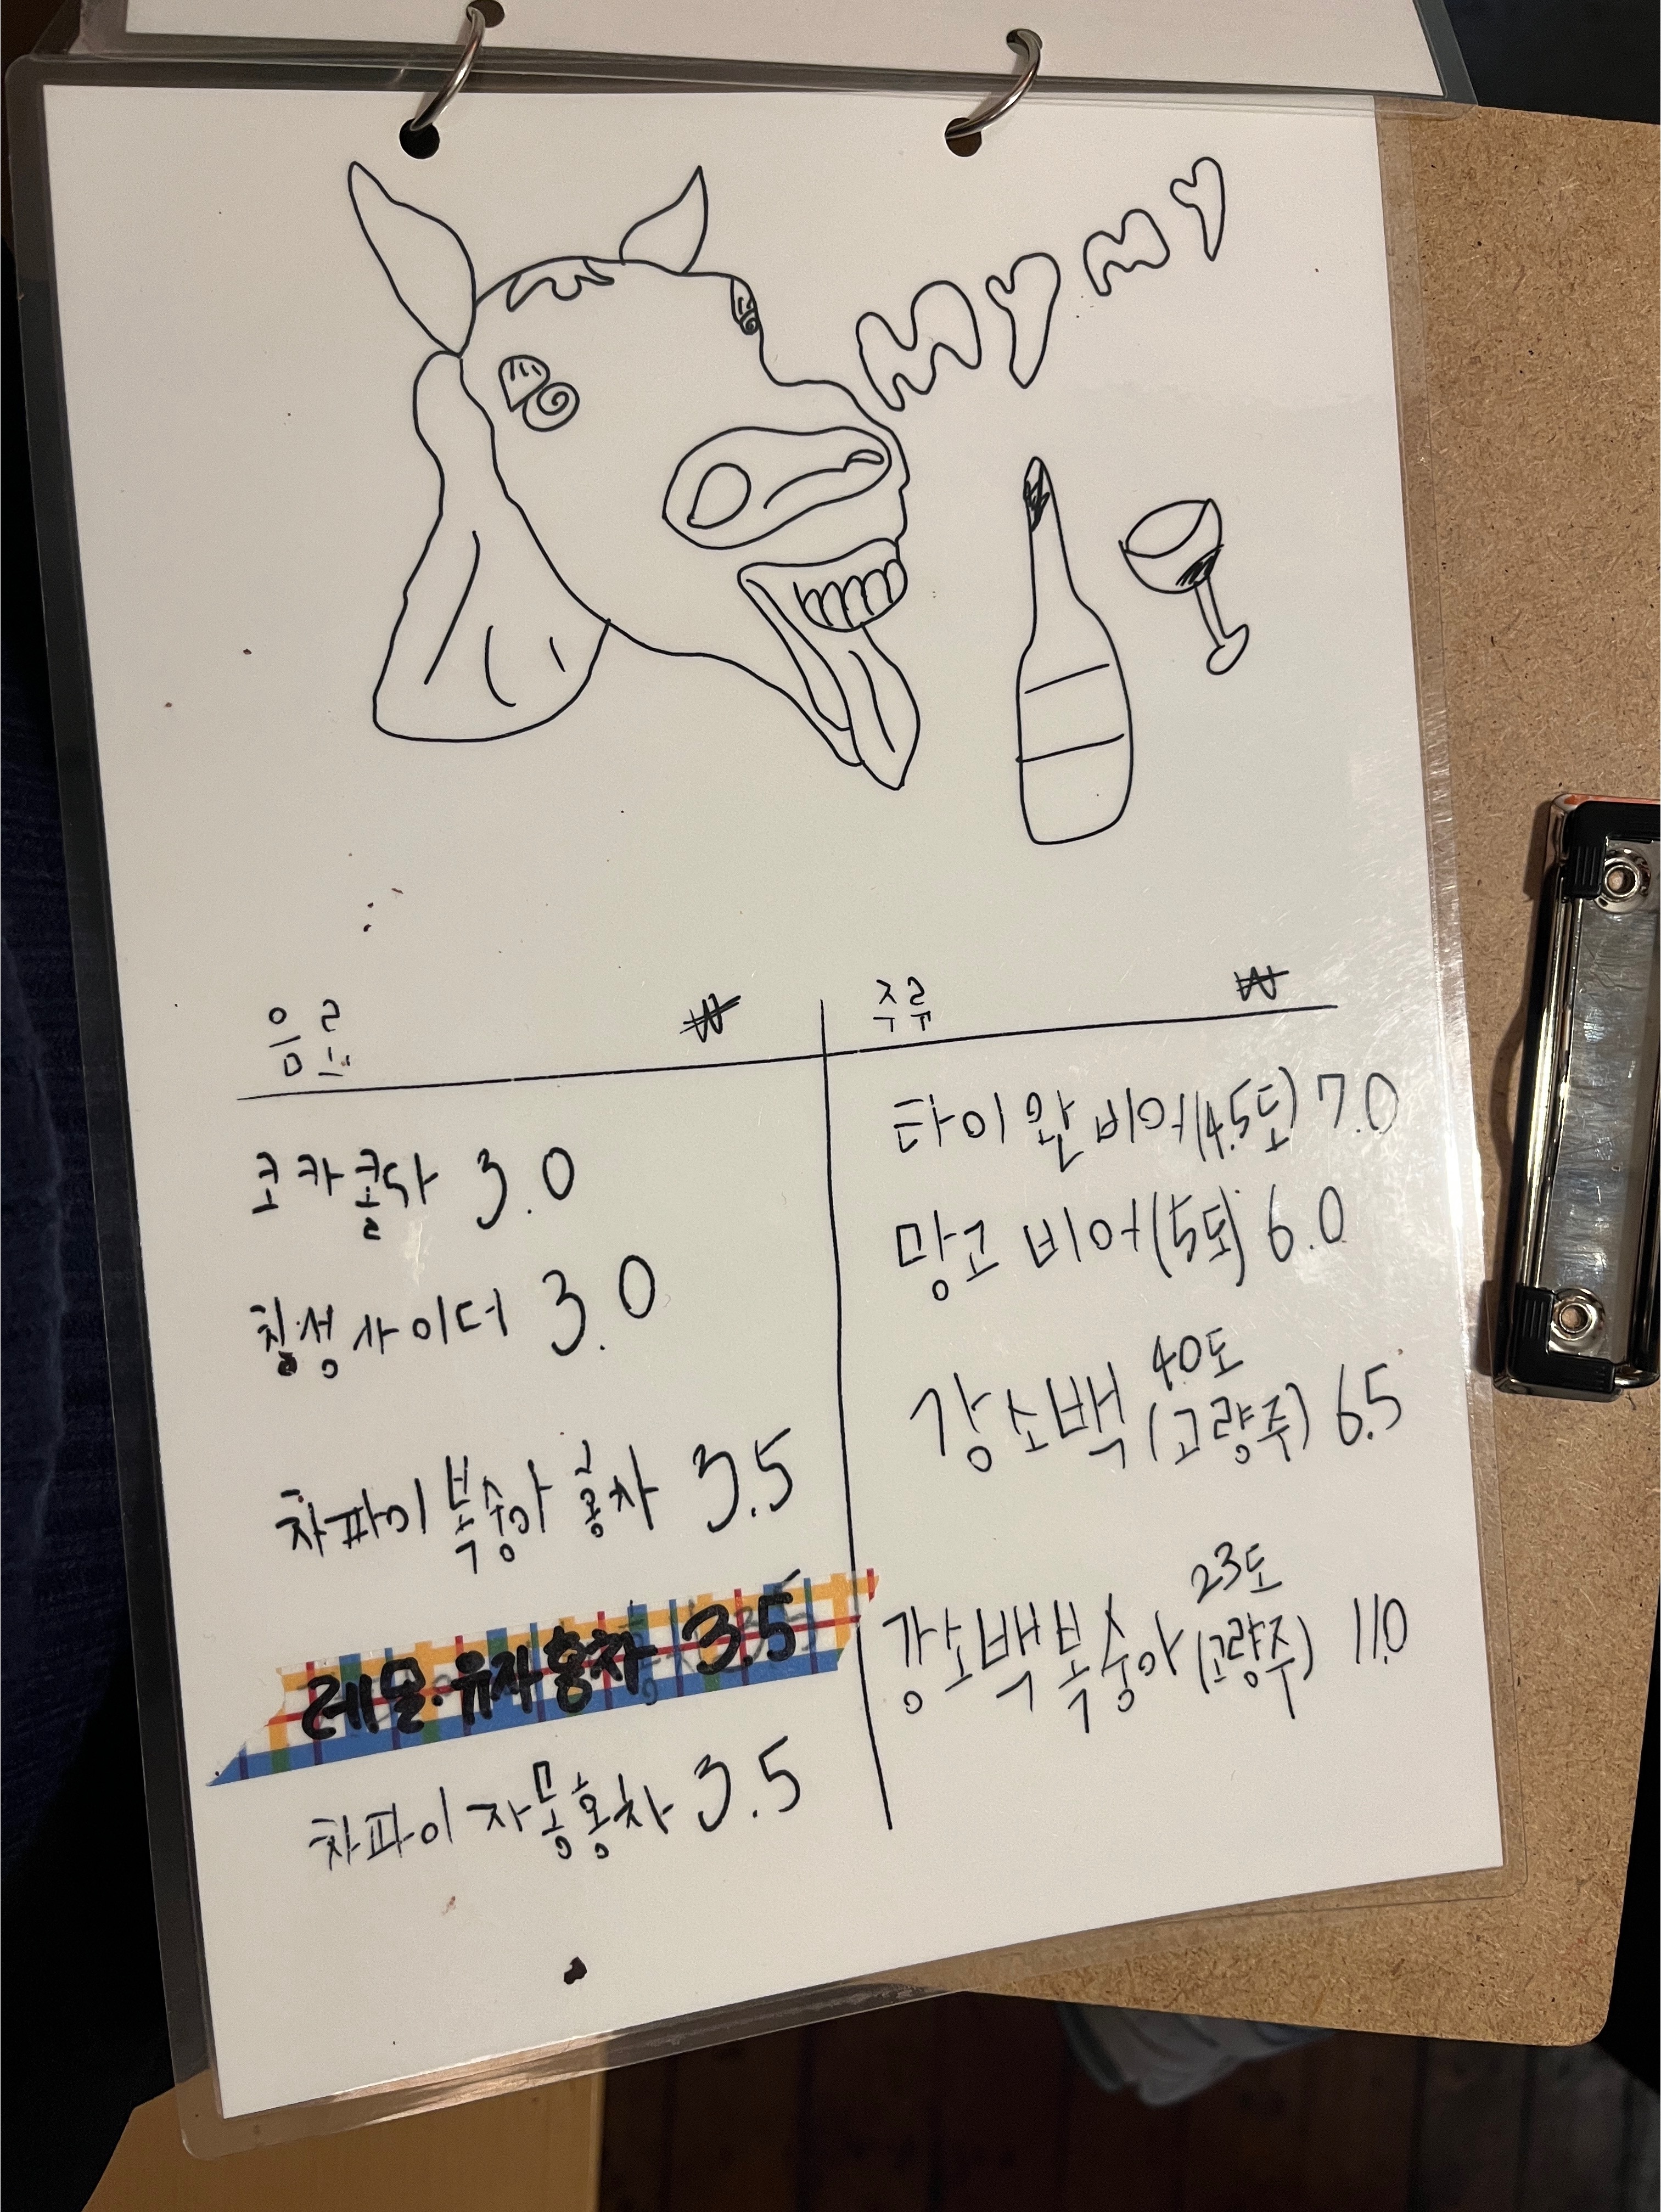 MYMY
음료 ₩
코카콜라 3.0
칠성사이더 3.0
차파이 복숭아 홍차 3.5
레몬·유자홍차 3.5
차파이 자몽홍차 3.5
주류 ₩
타이완 비어(4.5도) 7.0
망고 비어(5도) 6.0
강소백 40도(고량주) 6.5
강소백복숭아 23도(고량주) 11.0